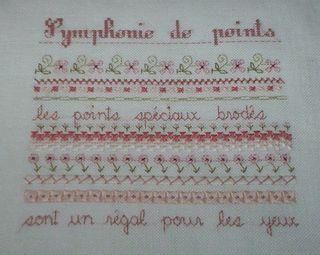 Symphonie de points
les points spéciaux brodés
sont un régal pour les yeux